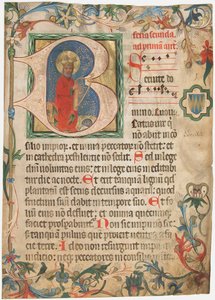 B
feria secunda.
ad primam
Servite do
mino.
eatus vir q
no abiit in co
silio impior et in via peccator no stetit: et
in cathedra pestilentie no sedit. Sed in lege
dni voluntas eius: et in lege eius meditabi
tur die ac nocte. Et erit tanq lignu quod
plantatu est secus decursus aquar: quod
fructum suu dabit in tempore suo. Et foli
um eius no defluet: et omnia quecunque
faciet prosperabunt. Non sic impii no sic:
sed tanq pulvis que proicit ventus a fa
cie terre. Ideo non resurgunt impii in iu
dicio: neq peccatores in concilio iustorum.